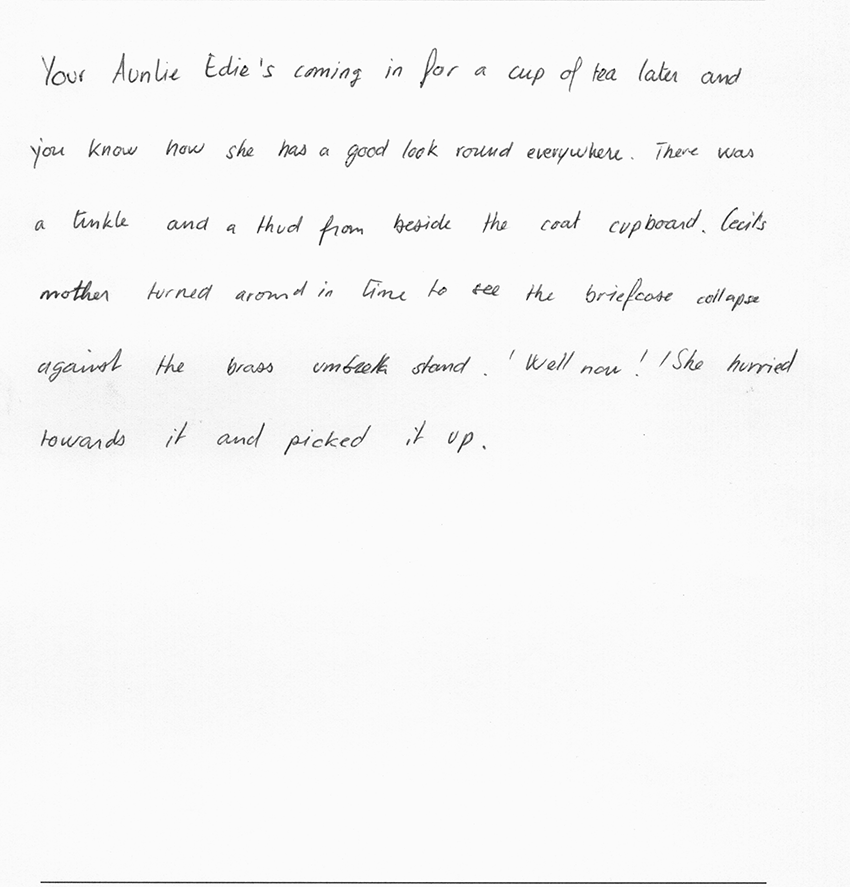 Your Auntie Edie's coming in for a cup of tea later and
you know how she has a good look round everywhere. There was
a tinkle and a thud from beside the coat cupboard. Cecil's
mother turned around in time to see the briefcase collapse
against the brass stand. 'Well now!' She hurried
towards it and picked it up.